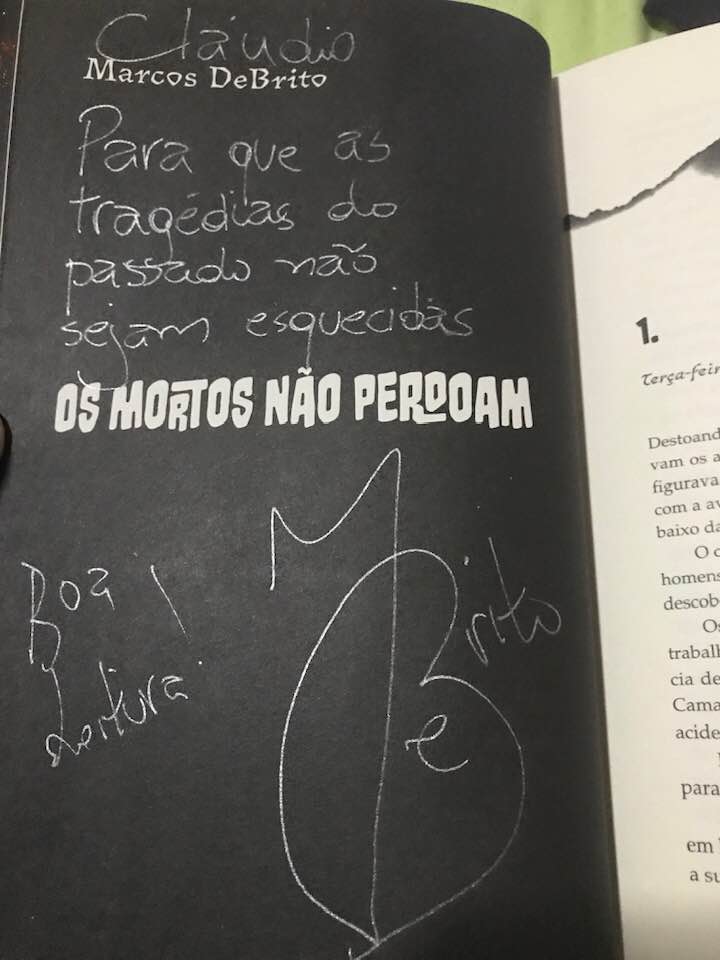 Cláudio
Marcos DeBrito
Para que as
tragédias do
passado não
sejam esquecidas
OS MORTOS NÃO PERDOAM
Boa
Leitura!
M DeBrito
1.
Terça-feir
Destoand
vam os a
figurava
com a av
baixo da
O c
homens
descob
Os
trabalh
cia de
Cama
acide
para
em
a su